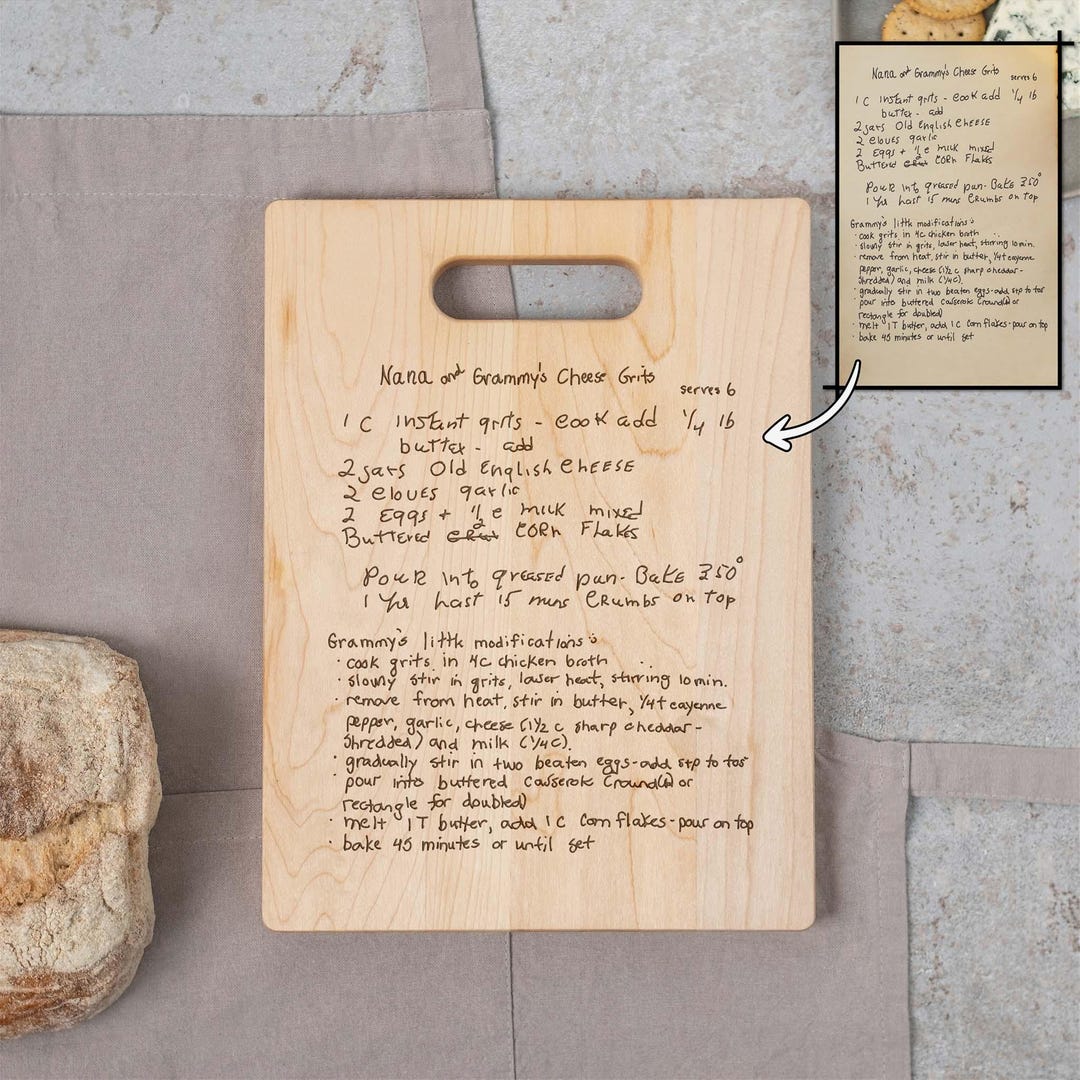 Nana and Grammy's Cheese Grits
serves 6
1 C instant grits - cook add 1/4 lb
butter - add
2 jars Old English CHEESE
2 cloves garlic
2 Eggs + 1/2 c milk mixed
Buttered CORN Flakes
Pour into greased pan. Bake 350°
1 Hr last 15 mins Crumbs on Top
Grammy's little modifications:
· cook grits in 4C chicken broth
· slowly stir in grits, lower heat, stirring 10 min.
· remove from heat, stir in butter, 1/4 t cayenne
pepper, garlic, cheese (1 1/2 c sharp cheddar-
shredded) and milk (1/4 C).
· gradually stir in two beaten eggs - add s+p to
pour into buttered casserole (round or
rectangle for doubled)
· melt 1T butter, add 1C Corn flakes - pour on top
· bake 45 minutes or until set
Nana and Grammy's Cheese Grits
serves 6
1 C instant grits - cook add 1/4 lb
butter - add
2 jars Old English CHEESE
2 cloves garlic
2 Eggs + 1/2 c milk mixed
Buttered CORN Flakes
Pour into greased pan. Bake 350°
1 Hr last 15 mins Crumbs on Top
Grammy's little modifications:
· cook grits in 4C chicken broth
· slowly stir in grits, lower heat, stirring 10 min.
· remove from heat, stir in butter, 1/4 t cayenne
pepper, garlic, cheese (1 1/2 c sharp cheddar-
shredded) and milk (1/4 C).
· gradually stir in two beaten eggs - add s+p to
pour into buttered casserole (round or
rectangle for doubled)
· melt 1T butter, add 1C Corn flakes - pour on top
· bake 45 minutes or until set